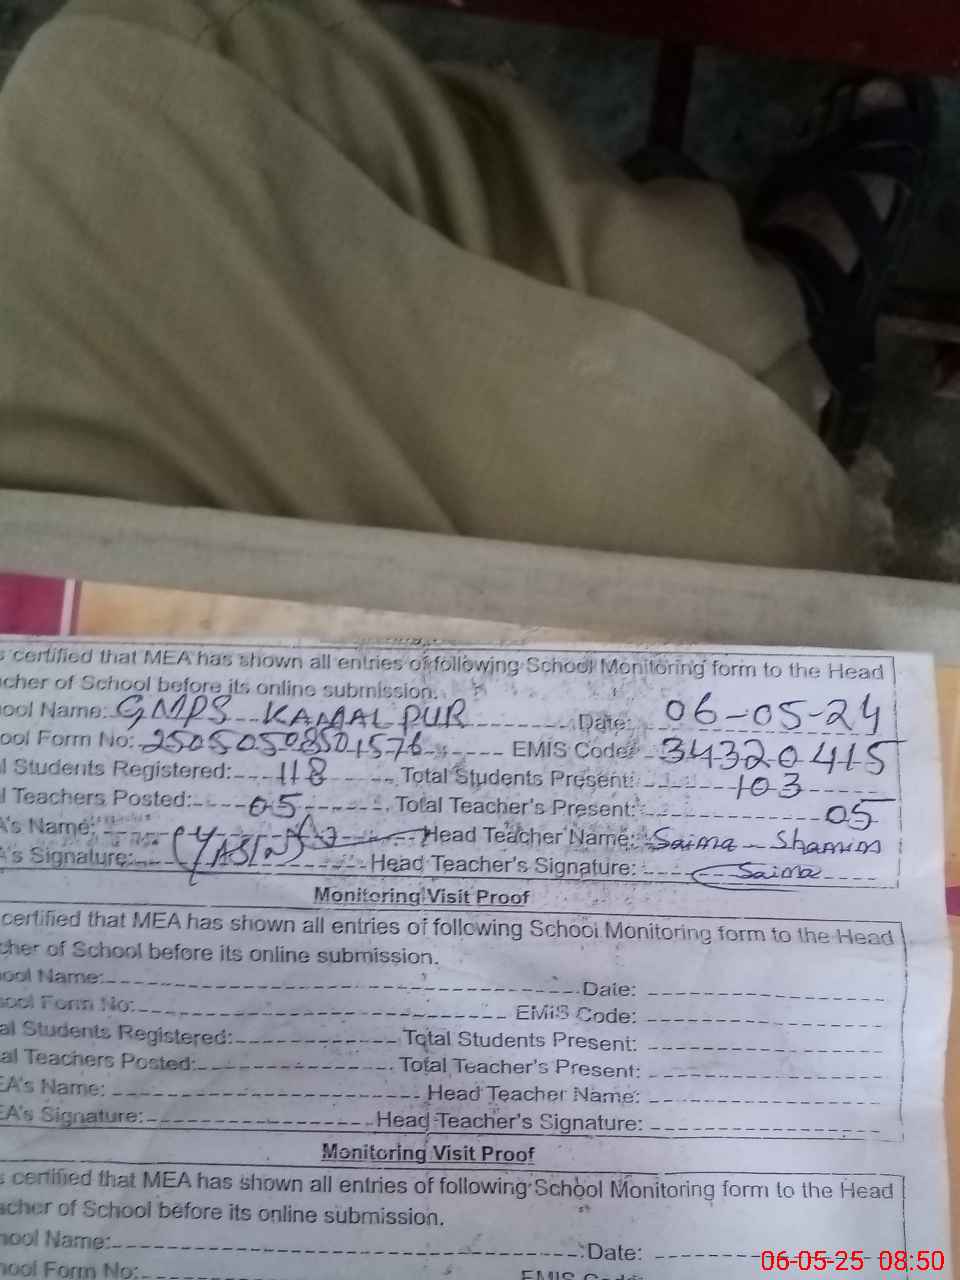 s certified that MEA has shown all entries of following School Monitoring form to the Head
cher of School before its online submission.
ool Name: GMPS KAMAL PUR Date: 06-05-24
ool Form No: 25050508501576 EMIS Code: 34320415
l Students Registered: 118 Total Students Present: 103
l Teachers Posted: 05 Total Teacher's Present: 05
A's Name: Head Teacher Name: Saima Shamim
A's Signature: (YASIN) Head Teacher's Signature: Saima
Monitoring Visit Proof
certified that MEA has shown all entries of following School Monitoring form to the Head
cher of School before its online submission.
ool Name: Date:
ool Form No: EMIS Code:
al Students Registered: Total Students Present:
al Teachers Posted: Total Teacher's Present:
EA's Name: Head Teacher Name:
EA's Signature: Head Teacher's Signature:
Monitoring Visit Proof
s certified that MEA has shown all entries of following School Monitoring form to the Head
acher of School before its online submission.
hool Name: Date:
hool Form No: EMIS Code:
06-05-25 08:50